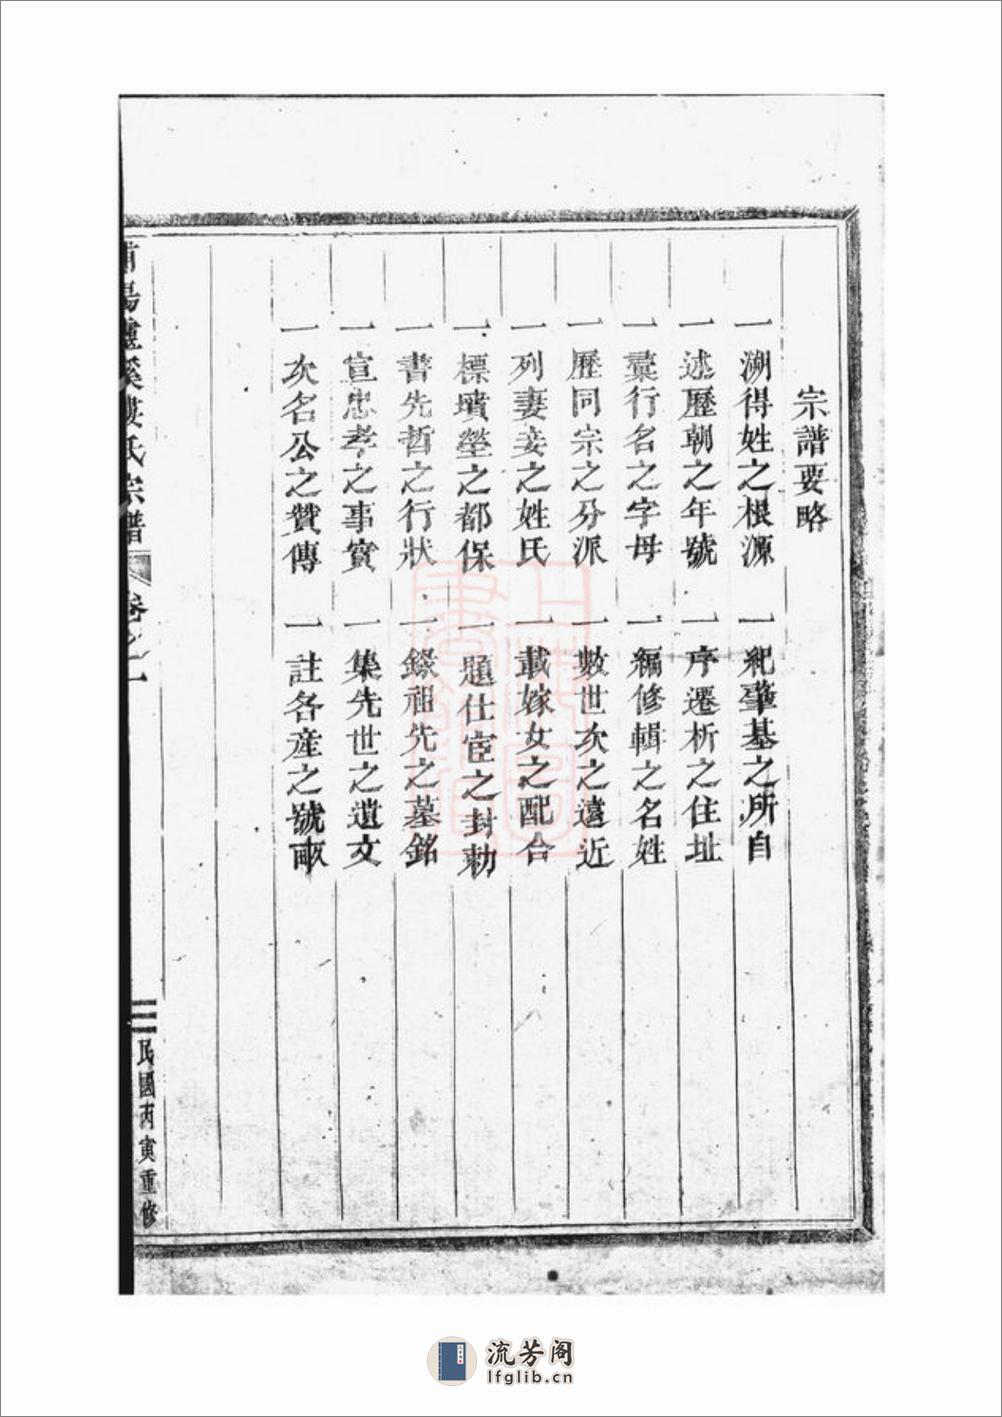 宗譜要略
一溯得姓之根源　一紀肇基之所自
一述歷朝之年號　一序遷析之住址
一彙行名之字母　一編修輯之名姓
一歷同宗之分派　一數世次之遠近
一列妻妾之姓氏　一載嫁女之配合
一標墳塋之都保　一題仕宦之封勅
一書先哲之行狀　一錄祖先之墓銘
一宣忠孝之事實　一集先世之遺文
一次名公之贊傳　一註各産之號畝
陽 溪 氏宗譜 卷之一 民國丙寅重修
上海圖書館藏
流芳阁
lfglib.cn